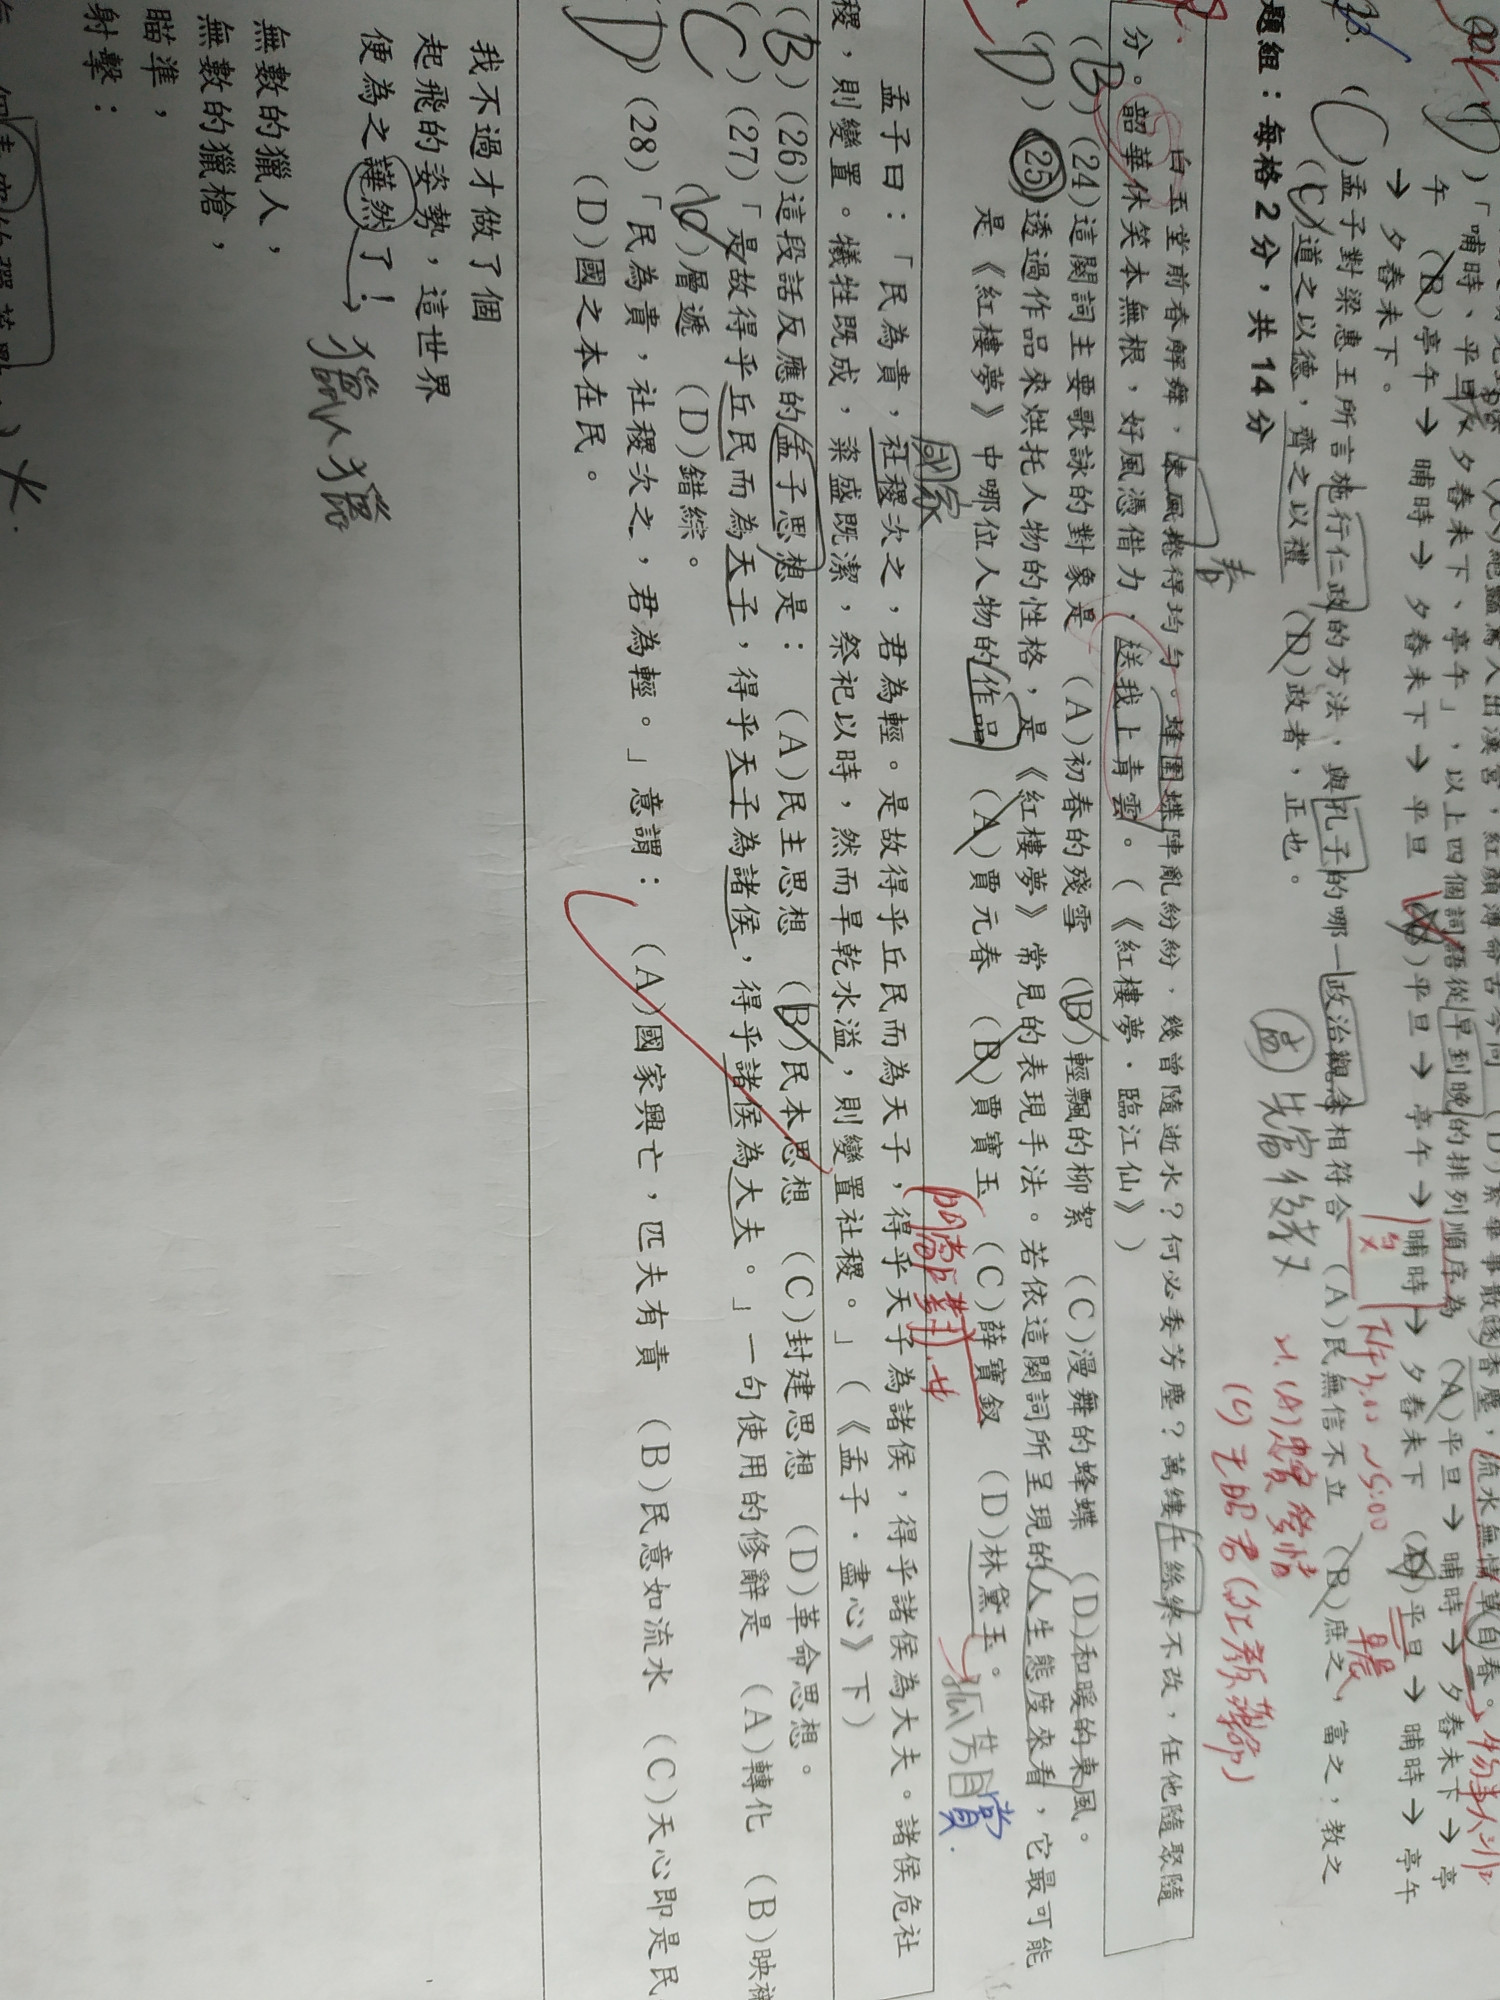 (D)「哺時、平旦、夕舂未下、亭午」，以上四個詞語從早到晚的排列順序為 (A)平旦→晡時→夕舂未下→亭
午 (B)亭午→晡時→夕舂未下→平旦 (C)平旦→亭午→晡時→夕舂未下 (D)平旦→晡時→亭午
→夕舂未下。
(C)孟子對梁惠王所言施行仁政的方法，與孔子的哪一政治觀念相符合 (A)民無信不立 (B)庶之，富之，教之
(C)道之以德，齊之以禮 (D)政者，正也。
孟 先富後教
早晨
21.(A)
(4)王昭君(紅顏薄命)
題組：每格2分，共14分
春
白玉堂前春解舞，東風捲得均勻。蜂圍蝶陣亂紛紛，幾曾隨逝水？何必委芳塵？萬縷千絲終不改，任他隨聚隨
分。韶華休笑本無根，好風憑借力，送我上青雲。（《紅樓夢．臨江仙》）
(B)(24)這闋詞主要歌詠的對象是 (A)初春的殘雪 (B)輕飄的柳絮 (C)漫舞的蜂蝶 (D)和暖的東風。
(D)(25)透過作品來烘托人物的性格，是《紅樓夢》常見的表現手法。若依這闋詞所呈現的人生態度來看，它最可能
是《紅樓夢》中哪位人物的作品 (A)賈元春 (B)賈寶玉 (C)薛寶釵 (D)林黛玉。
孤芳自賞.
國家
孟子曰：「民為貴，社稷次之，君為輕。是故得乎丘民而為天子，得乎天子為諸侯，得乎諸侯為大夫。諸侯危社
稷，則變置。犧牲既成，粢盛既潔，祭祀以時，然而旱乾水溢，則變置社稷。」（《孟子．盡心》下）
(B)(26)這段話反應的孟子思想是： (A)民主思想 (B)民本思想 (C)封建思想 (D)革命思想。
(C)(27)「是故得乎丘民而為天子，得乎天子為諸侯，得乎諸侯為大夫。」一句使用的修辭是 (A)轉化 (B)映襯
(C)層遞 (D)錯綜。
(D)(28)「民為貴，社稷次之，君為輕。」意謂： (A)國家興亡，匹夫有責 (B)民意如流水 (C)天心即是民
(D)國之本在民。
我不過才做了個
起飛的姿勢，這世界
便為之譁然了！
獵人獵
無數的獵人，
無數的獵槍，
瞄準，
射擊：